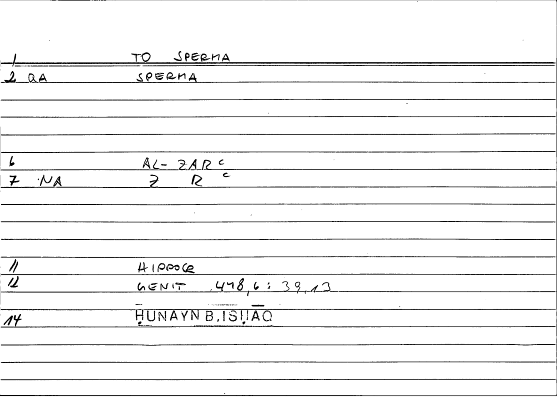 1 TO SPERMA
2 QA SPERMA
6 AL-ZARᶜ
7 NA Z R ᶜ
11 HIPPOCR
12 GENIT 478,6 : 39,13
14 ḤUNAYN B. ISḤĀQ